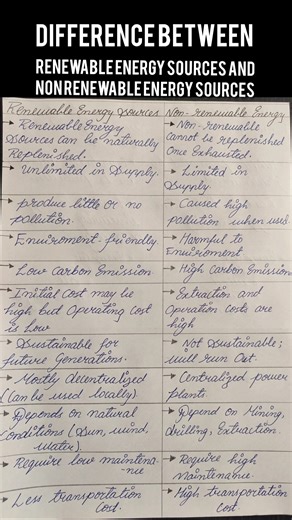 DIFFERENCE BETWEEN
RENEWABLE ENERGY SOURCES AND
NON RENEWABLE ENERGY SOURCES
Renewable Energy Sources
→ Renewable Energy
Sources can be naturally
Replenished.
→ Unlimited in Supply.
→ produce little or no
pollution.
→ Enviroment-friendly.
→ Low Carbon Emission
→ Initial Cost may be
high but Operating Cost
is Low
→ Sustainable for
future Generations.
→ Mostly decentralized
(Can be used locally)
→ Depends on natural
Conditions (Sun, wind,
water).
→ Require low maintena-
nce
→ Less transportation
Cost.
Non-renewable Energy
→ Non-renewable
cannot be replenished
Once Exhausted.
→ Limited in
Supply.
→ Caused high
pollution when used.
→ Harmful to
Enviroment
→ High Carbon Emission
→ Extraction and
Operation Costs are
high
→ Not Sustainable;
will run Out.
→ Centralized power
plants.
→ Depend on Mining,
drilling, Extraction.
→ Require high
Maintenance.
→ High transportation
cost.